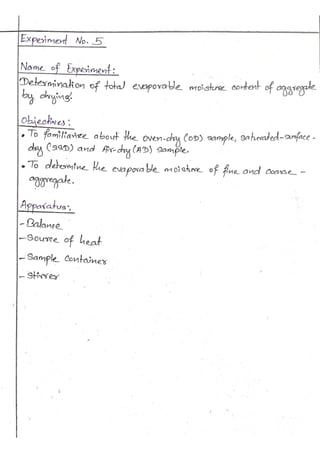 Experiment No. 5
Name of Experiment:
Determination of total evaporable moisture content of aggregate
by drying.
Objectives:
• To familiarize about the oven-dry (OD) sample, saturated-surface-
dry (SSD) and Air-dry (AD) sample.
• To determine the evaporable moisture of fine and coarse-
aggregate.
Apparatus:
- Balance
- Source of heat
- Sample Container
- Stirrer